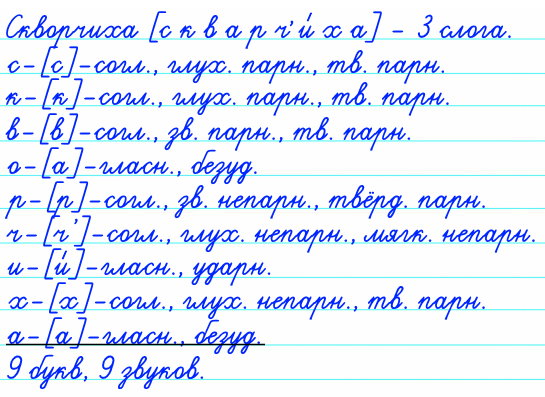 Скворчиха [с к в а р ч' и́ х а] – 3 слога.
с–[с]–согл., глух. парн., тв. парн.
к–[к]–согл., глух. парн., тв. парн.
в–[в]–согл., зв. парн., тв. парн.
о–[а]–гласн., безуд.
р–[р]–согл., зв. непарн., твёрд. парн.
ч–[ч']–согл., глух. непарн., мягк. непарн.
и–[и́]–гласн., ударн.
х–[х]–согл., глух. непарн., тв. парн.
а–[а]–гласн., безуд.
9 букв, 9 звуков.